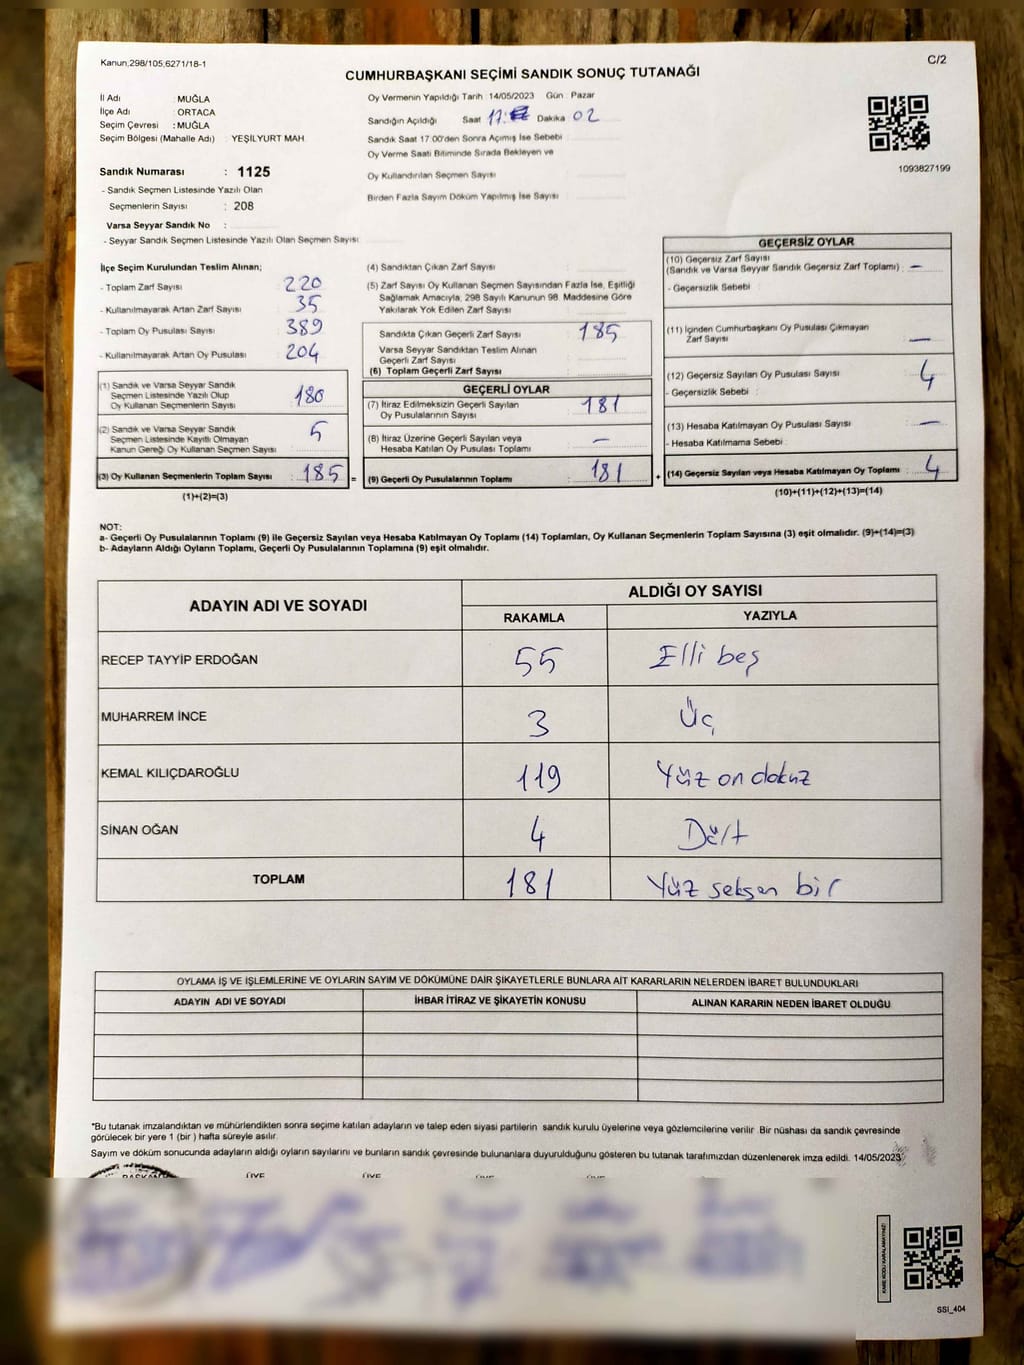 Kanun,298/105,6271/18-1
C/2
CUMHURBAŞKANI SEÇİMİ SANDIK SONUÇ TUTANAĞI
İl Adı : MUĞLA
İlçe Adı : ORTACA
Seçim Çevresi : MUĞLA
Seçim Bölgesi (Mahalle Adı) : YEŞİLYURT MAH
Oy Vermenin Yapıldığı Tarih :14/05/2023 Gün : Pazar
Sandığın Açıldığı Saat 17: Dakika 02
Sandık Saat 17:00'den Sonra Açımış İse Sebebi
Oy Verme Saati Bitiminde Sırada Bekleyen ve
Oy Kullandırılan Seçmen Sayısı
Birden Fazla Sayım Döküm Yapılmış İse Sayısı :
1093827199
Sandık Numarası : 1125
- Sandık Seçmen Listesinde Yazılı Olan
Seçmenlerin Sayısı : 208
Varsa Seyyar Sandık No :
- Seyyar Sandık Seçmen Listesinde Yazılı Olan Seçmen Sayısı:
İlçe Seçim Kurulundan Teslim Alınan;
- Toplam Zarf Sayısı : 220
- Kullanılmayarak Artan Zarf Sayısı : 35
- Toplam Oy Pusulası Sayısı : 389
- Kullanılmayarak Artan Oy Pusulası : 204
(1) Sandık ve Varsa Seyyar Sandık
Seçmen Listesinde Yazılı Olup
Oy Kullanan Seçmenlerin Sayısı : 180
(2) Sandık ve Varsa Seyyar Sandık
Seçmen Listesinde Kayıtlı Olmayan
Kanun Gereği Oy Kullanan Seçmen Sayısı : 5
(3) Oy Kullanan Seçmenlerin Toplam Sayısı : 185 =
(1)+(2)=(3)
(4) Sandıktan Çıkan Zarf Sayısı :
(5) Zarf Sayısı Oy Kullanan Seçmen Sayısından Fazla İse, Eşitliği
Sağlamak Amacıyla, 298 Sayılı Kanunun 98. Maddesine Göre
Yakılarak Yok Edilen Zarf Sayısı :
Sandıkta Çıkan Geçerli Zarf Sayısı : 185
Varsa Seyyar Sandıktan Teslim Alınan
Geçerli Zarf Sayısı :
(6) Toplam Geçerli Zarf Sayısı :
GEÇERLİ OYLAR
(7) İtiraz Edilmeksizin Geçerli Sayılan
Oy Pusulalarının Sayısı : 181
(8) İtiraz Üzerine Geçerli Sayılan veya
Hesaba Katılan Oy Pusulası Toplamı : –
(9) Geçerli Oy Pusulalarının Toplamı : 181 +
GEÇERSİZ OYLAR
(10) Geçersiz Zarf Sayısı
(Sandık ve Varsa Seyyar Sandık Geçersiz Zarf Toplamı) : –
- Geçersizlik Sebebi :
(11) İçinden Cumhurbaşkanı Oy Pusulası Çıkmayan
Zarf Sayısı : –
(12) Geçersiz Sayılan Oy Pusulası Sayısı : 4
- Geçersizlik Sebebi :
(13) Hesaba Katılmayan Oy Pusulası Sayısı : –
- Hesaba Katılmama Sebebi :
(14) Geçersiz Sayılan veya Hesaba Katılmayan Oy Toplamı : 4
(10)+(11)+(12)+(13)=(14)
NOT:
a- Geçerli Oy Pusulalarının Toplamı (9) ile Geçersiz Sayılan veya Hesaba Katılmayan Oy Toplamı (14) Toplamları, Oy Kullanan Seçmenlerin Toplam Sayısına (3) eşit olmalıdır. (9)+(14)=(3)
b- Adayların Aldığı Oyların Toplamı, Geçerli Oy Pusulalarının Toplamına (9) eşit olmalıdır.
ADAYIN ADI VE SOYADI ALDIĞI OY SAYISI
RAKAMLA YAZIYLA
RECEP TAYYİP ERDOĞAN 55 Elli beş
MUHARREM İNCE 3 Üç
KEMAL KILIÇDAROĞLU 119 Yüz on dokuz
SİNAN OĞAN 4 Dört
TOPLAM 181 Yüz seksen bir
OYLAMA İŞ VE İŞLEMLERİNE VE OYLARIN SAYIM VE DÖKÜMÜNE DAİR ŞİKAYETLERLE BUNLARA AİT KARARLARIN NELERDEN İBARET BULUNDUKLARI
ADAYIN ADI VE SOYADI İHBAR İTİRAZ VE ŞİKAYETİN KONUSU ALINAN KARARIN NEDEN İBARET OLDUĞU
*Bu tutanak imzalandıktan ve mühürlendikten sonra seçime katılan adayların ve talep eden siyasi partilerin sandık kurulu üyelerine veya gözlemcilerine verilir. Bir nüshası da sandık çevresinde
görülecek bir yere 1 (bir) hafta süreyle asılır.
Sayım ve döküm sonucunda adayların aldığı oyların sayılarını ve bunların sandık çevresinde bulunanlara duyurulduğunu gösteren bu tutanak tarafımızdan düzenlenerek imza edildi. 14/05/2023
BAŞKAN ÜYE ÜYE ÜYE ÜYE
KAREKODU KARALAMAYINIZ!
SSI_404